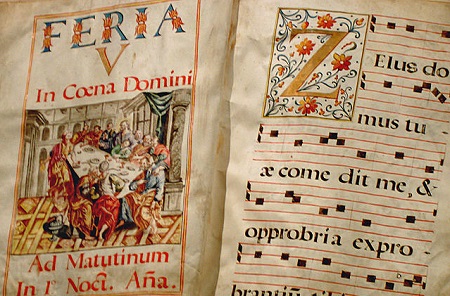 FERIA
V
In Cœna Domini
Ad Matutinum
In I.º Noct. Aña.
ZElus do
mus tu
æ come dit me, &
opprobria expro
brantiũ